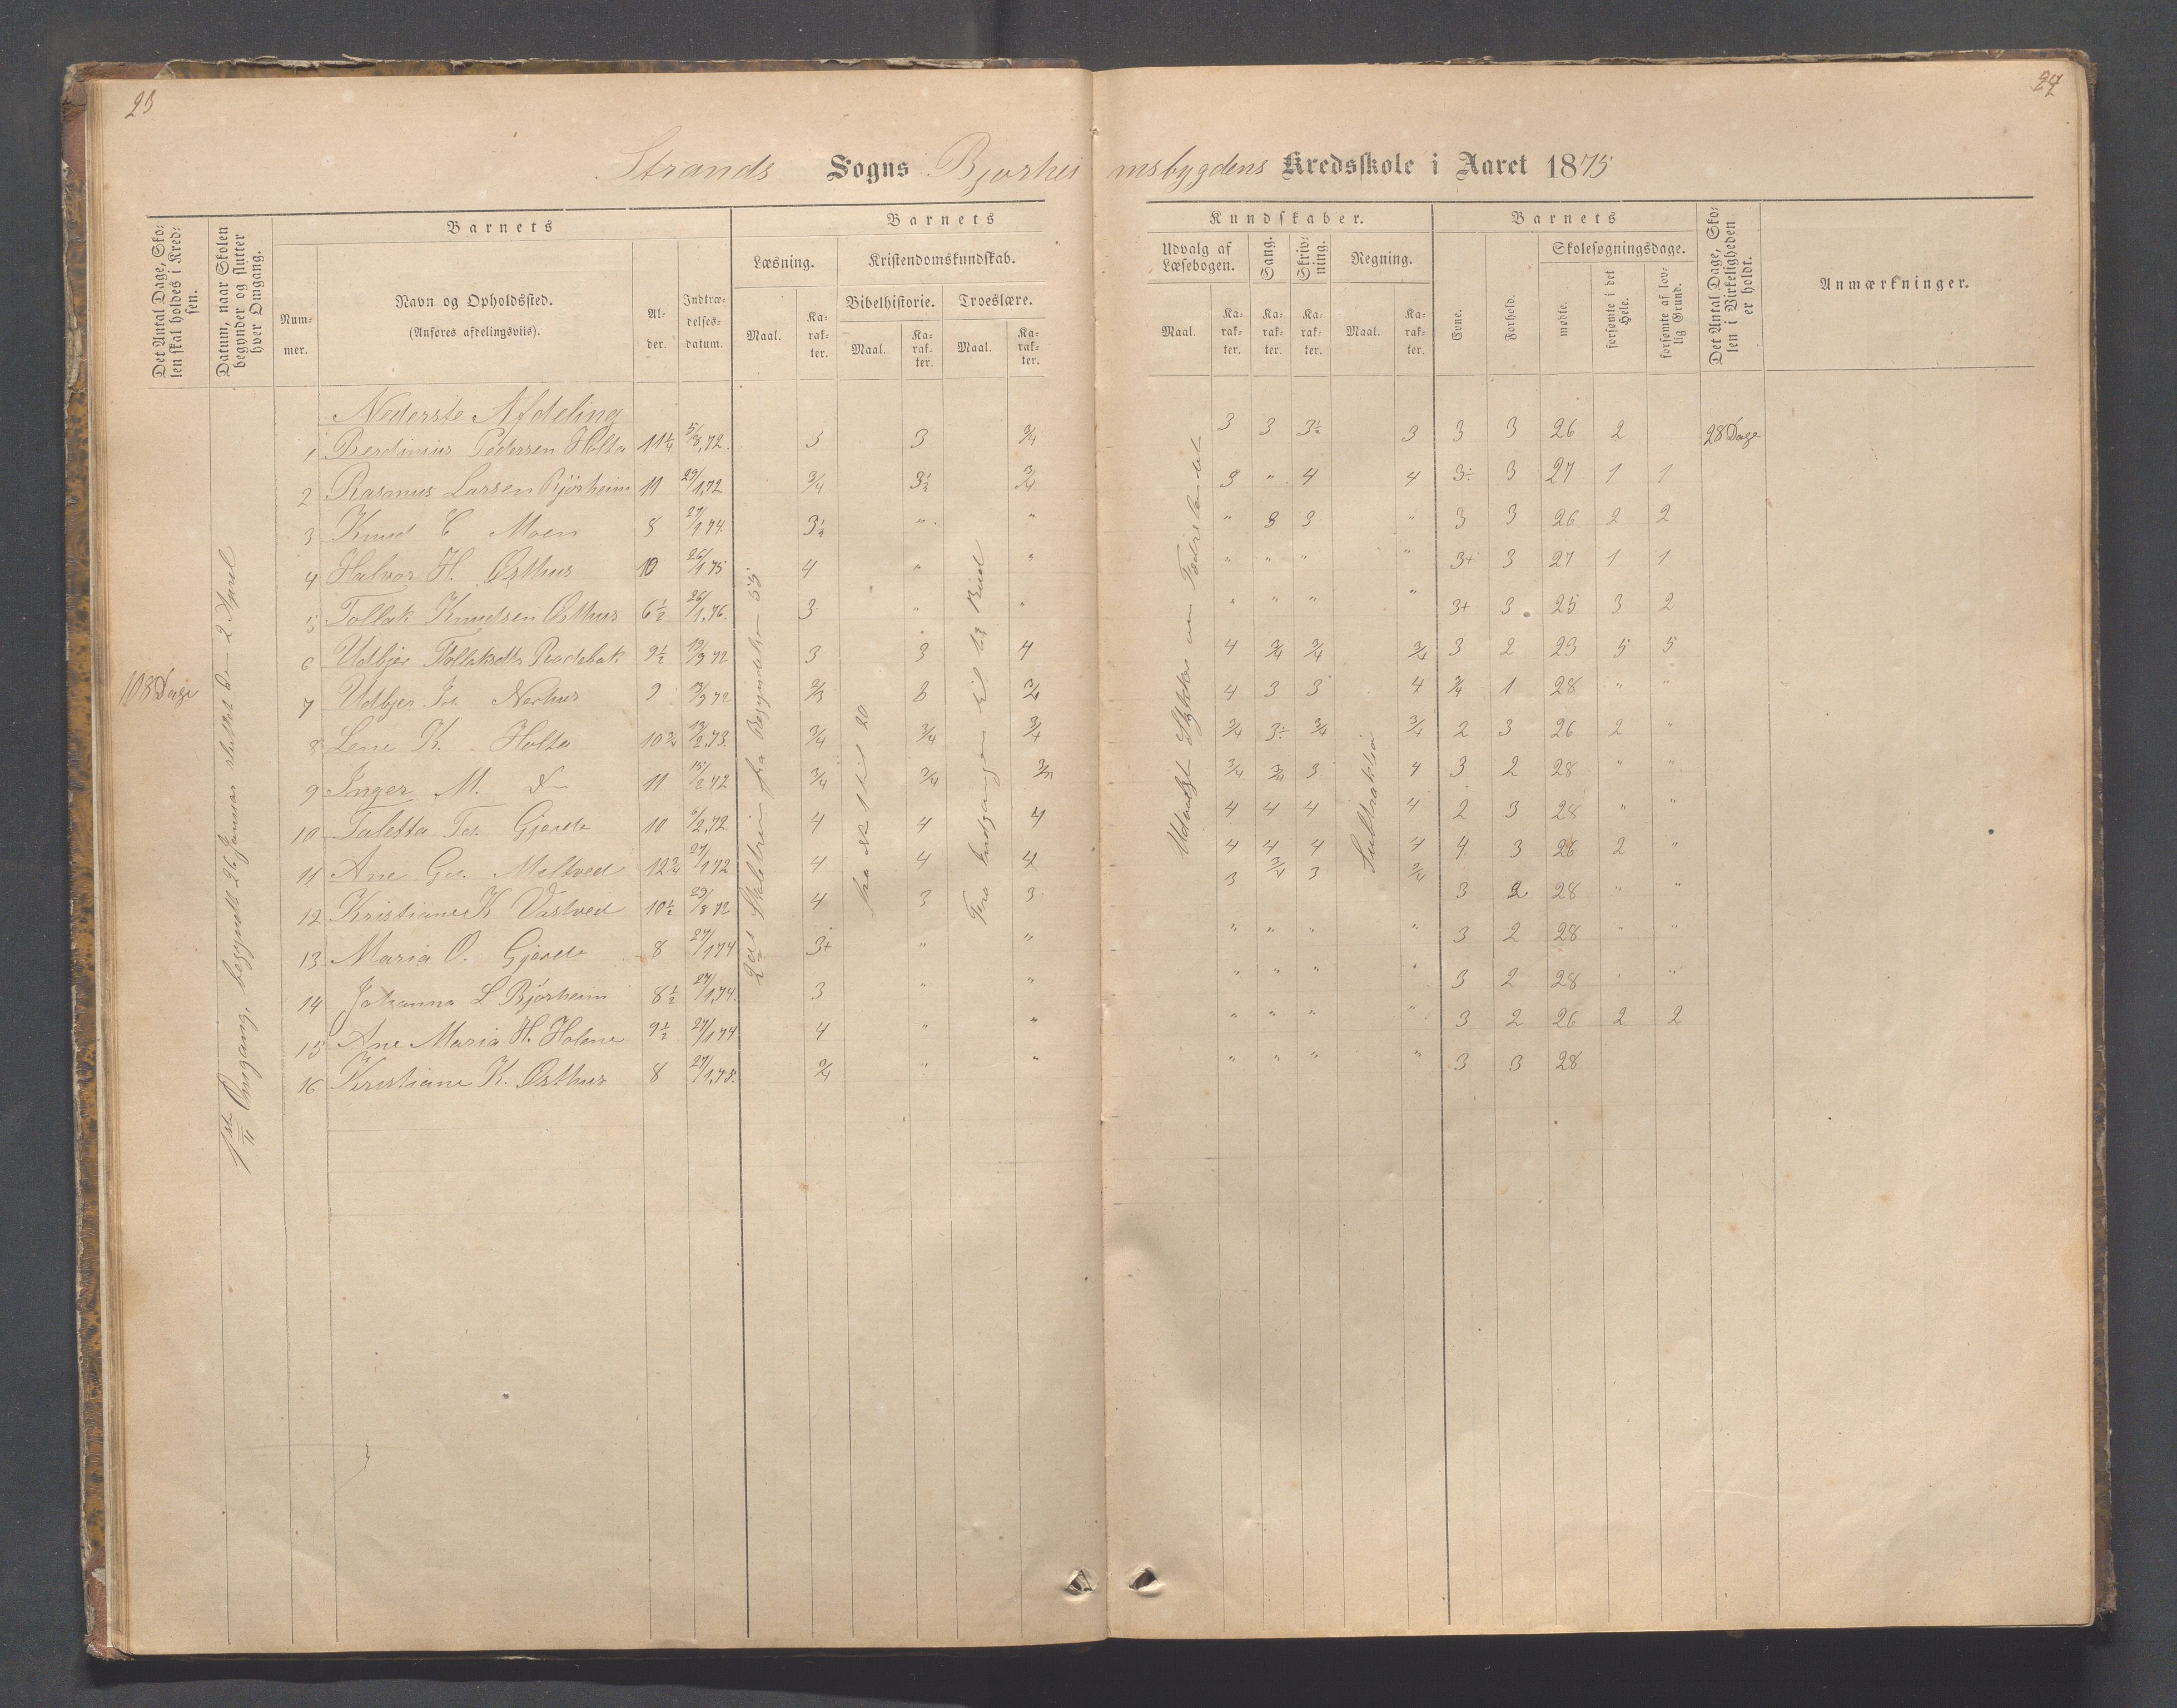 23
24
Strands Sogns Bjørheimsbygdens Kredsskole i Aaret 1875
Det Antal Dage, Skolen skal holdes i Kredsen.
Datum, naar Skolen begynder og slutter hver Omgang.
Barnets
Nummer.
Navn og Opholdssted.
(Anføres afdelingsviis).
Alder.
Indtrædelsesdatum.
Barnets
Læsning.
Kristendomskundskab.
Bibelhistorie.
Troeslære.
Maal.
Karakter.
Maal.
Karakter.
Maal.
Karakter.
Kundskaber.
Udvalg af Læsebogen.
Sang.
Skrivning.
Regning.
Maal.
Karakter.
Karakter.
Karakter.
Maal.
Karakter.
Barnets
Evne.
Forhold.
Skolesøgningsdage.
mødte.
forsømte i det Hele.
forsømte af lovlig Grund.
Det Antal Dage, Skolen i Virkeligheden er holdt.
Anmærkninger.
108 Dage
1ste Omgang, begyndt 26 Januar sluttet den 2 April
2det Skoletrin fra Begyndelsen 53
fra st 1 til 20
Fra Indgangen til 13 Bud
Udvalgte Stykker om Fædrelandet
Subtraktion
Nederste Afdeling
1 Berdinius Pedersen Holta 11¼ 5/8,72. 3 3 3/4 3 3 3½ 3 3 3 26 2 28 Dage
2 Rasmus Larsen Bjørheim 11 29/1,72 3/4 3½ 3/4 3 " 4 4 3÷ 3 27 1 1
3 Knud C Moen 8 27/1 74. 3½ " " " 3 3 " 3 3 26 2 2
4 Halvor H. Østhus 10 26/1 75 4 " " " " " " 3+ 3 27 1 1
5 Tollak Knudsen Østhus 6½ 26/1,76. 3 " " " " " " 3+ 3 25 3 2
6 Udbjør Tollaksdtr 9½ 13/3 72 3 3 4 4 3/4 3/4 3/4 3 2 23 5 5
7 Udbjør Js. Nerhus 9 13/3 72 2/3 3 3/4 4 3 3 4 3/4 1 28 " "
8 Lene K. Holta 10¾ 13/2,73. 3/4 3/4 3/4 3/4 3÷ 3/4 3/4 2 3 26 2 "
9 Inger M. do 11 15/2 72 3/4 3/4 3/4 3/4 3/4 3 4 3 2 28 " "
10 Taletta Ts. Gjerde 10 6/2,72. 4 4 4 4 4 4 4 2 3 28 " "
11 Ane Gs. Meltved 12¾ 27/1 72 4 4 4 4 4 4 4 4 3 26 2 "
12 Kristiane K Vastved 10½ 29/8 72 4 3 3 3 3/4 3 3/4 3 2 28 " "
13 Maria O. Gjerde 8 27/1 74 3+ " " " " " " 3 2 28 " "
14 Johanna L Bjørheim 8½ 27/1,74. 3 " " " " " " 3 2 28 " "
15 Ane Maria H. Holene 9½ 27/1 74 4 " " " " " " 3 2 26 2 2
16 Kirstiane K. Østhus 8 27/1,75. 3/4 " " " " " " 3 3 28